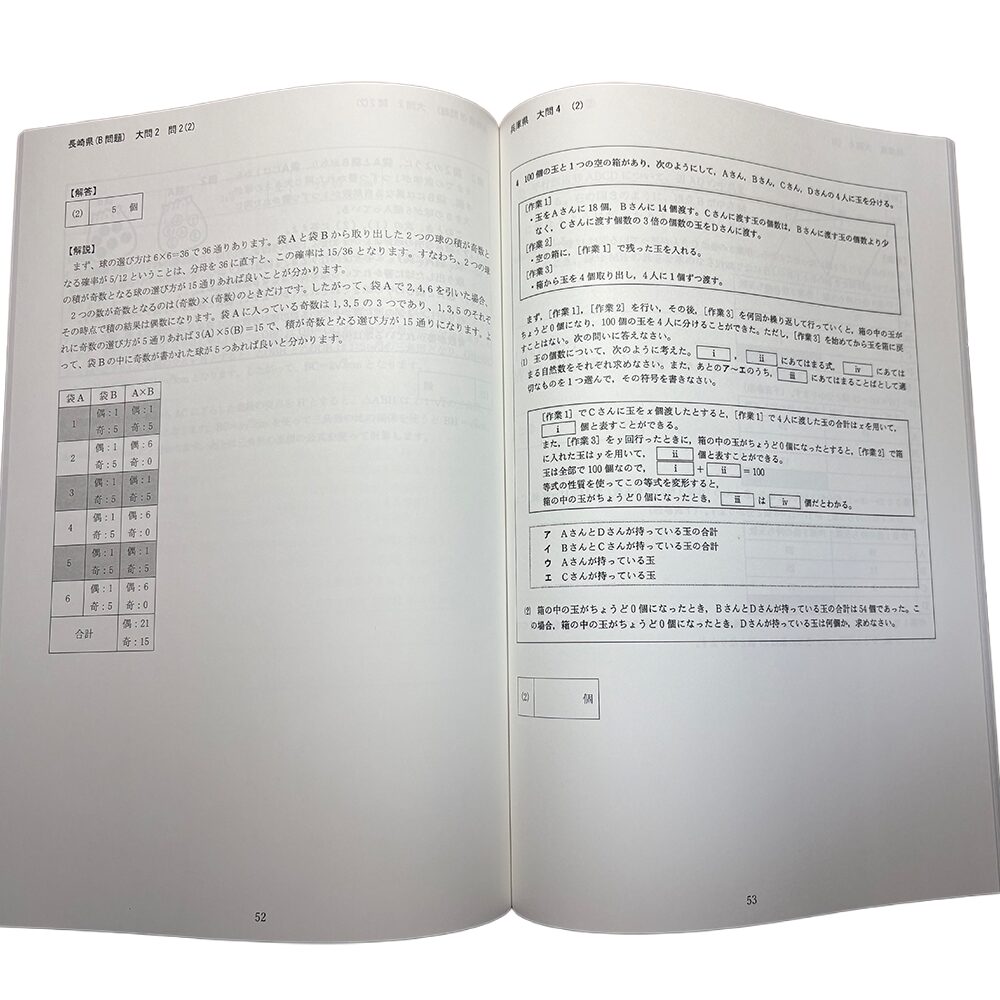 長崎県(B問題) 大問2 問2(2)
【解答】
(2) 5 個
【解説】
まず、球の選び方は6×6=36で36通りあります。袋Aと袋Bから取り出した2つの球の積が奇数と
なる確率が5/12ということは、分母を36に直すと、この確率は15/36となります。すなわち、2つの球
の積が奇数となる球の選び方が15通りあれば良いことが分かります。
2つの数が奇数となるのは(奇数)×(奇数)のときだけです。したがって、袋Aで2,4,6を引いた場合、
その時点で積の結果は偶数になります。袋Aに入っている奇数は1,3,5の3つであり、1,3,5のそれぞ
れに奇数の選び方が5通りあれば3(A)×5(B)=15で、積が奇数となる選び方が15通りになります。よ
って、袋Bの中に奇数が書かれた球が5つあれば良いと分かります。
袋A 袋B A×B
1 偶:1 偶:1
奇:5 奇:5
2 偶:1 偶:6
奇:5 奇:0
3 偶:1 偶:1
奇:5 奇:5
4 偶:1 偶:6
奇:5 奇:0
5 偶:1 偶:1
奇:5 奇:5
6 偶:1 偶:6
奇:5 奇:0
合計 偶:21
奇:15
52
兵庫県 大問4 (2)
4 100個の玉と1つの空の箱があり、次のようにして、Aさん、Bさん、Cさん、Dさんの4人に玉を分ける。
[作業1]
・玉をAさんに18個、Bさんに14個渡す。Cさんに渡す玉の個数は、Bさんに渡す玉の個数より少
なく、Cさんに渡す個数の3倍の個数の玉をDさんに渡す。
[作業2]
・空の箱に、[作業1]で残った玉を入れる。
[作業3]
・箱から玉を4個取り出し、4人に1個ずつ渡す。
まず、[作業1]、[作業2]を行い、その後、[作業3]を何回か繰り返して行っていくと、箱の中の玉が
ちょうど0個になり、100個の玉を4人に分けることができた。ただし、[作業3]を始めてから玉を箱に戻
すことはない。次の問いに答えなさい。
(1) 玉の個数について、次のように考えた。 i 、 ii にあてはまる式、 iv にあては
まる自然数をそれぞれ求めなさい。また、あとのア〜エのうち、 iii にあてはまることばとして適
切なものを1つ選んで、その符号を書きなさい。
[作業1]でCさんに玉をx個渡したとすると、[作業1]で4人に渡した玉の合計はxを用いて、
i 個と表すことができる。
また、[作業3]をy回行ったときに、箱の中の玉がちょうど0個になったとすると、[作業2]で箱
に入れた玉はyを用いて、 ii 個と表すことができる。
玉は全部で100個なので、 i + ii =100
等式の性質を使ってこの等式を変形すると、
箱の中の玉がちょうど0個になったとき、 iii は iv 個だとわかる。
ア AさんとDさんが持っている玉の合計
イ BさんとCさんが持っている玉の合計
ウ Aさんが持っている玉
エ Cさんが持っている玉
(2) 箱の中の玉がちょうど0個になったとき、BさんとDさんが持っている玉の合計は54個であった。こ
の場合、箱の中の玉がちょうど0個になったとき、Dさんが持っている玉は何個か、求めなさい。
(2) 個
53